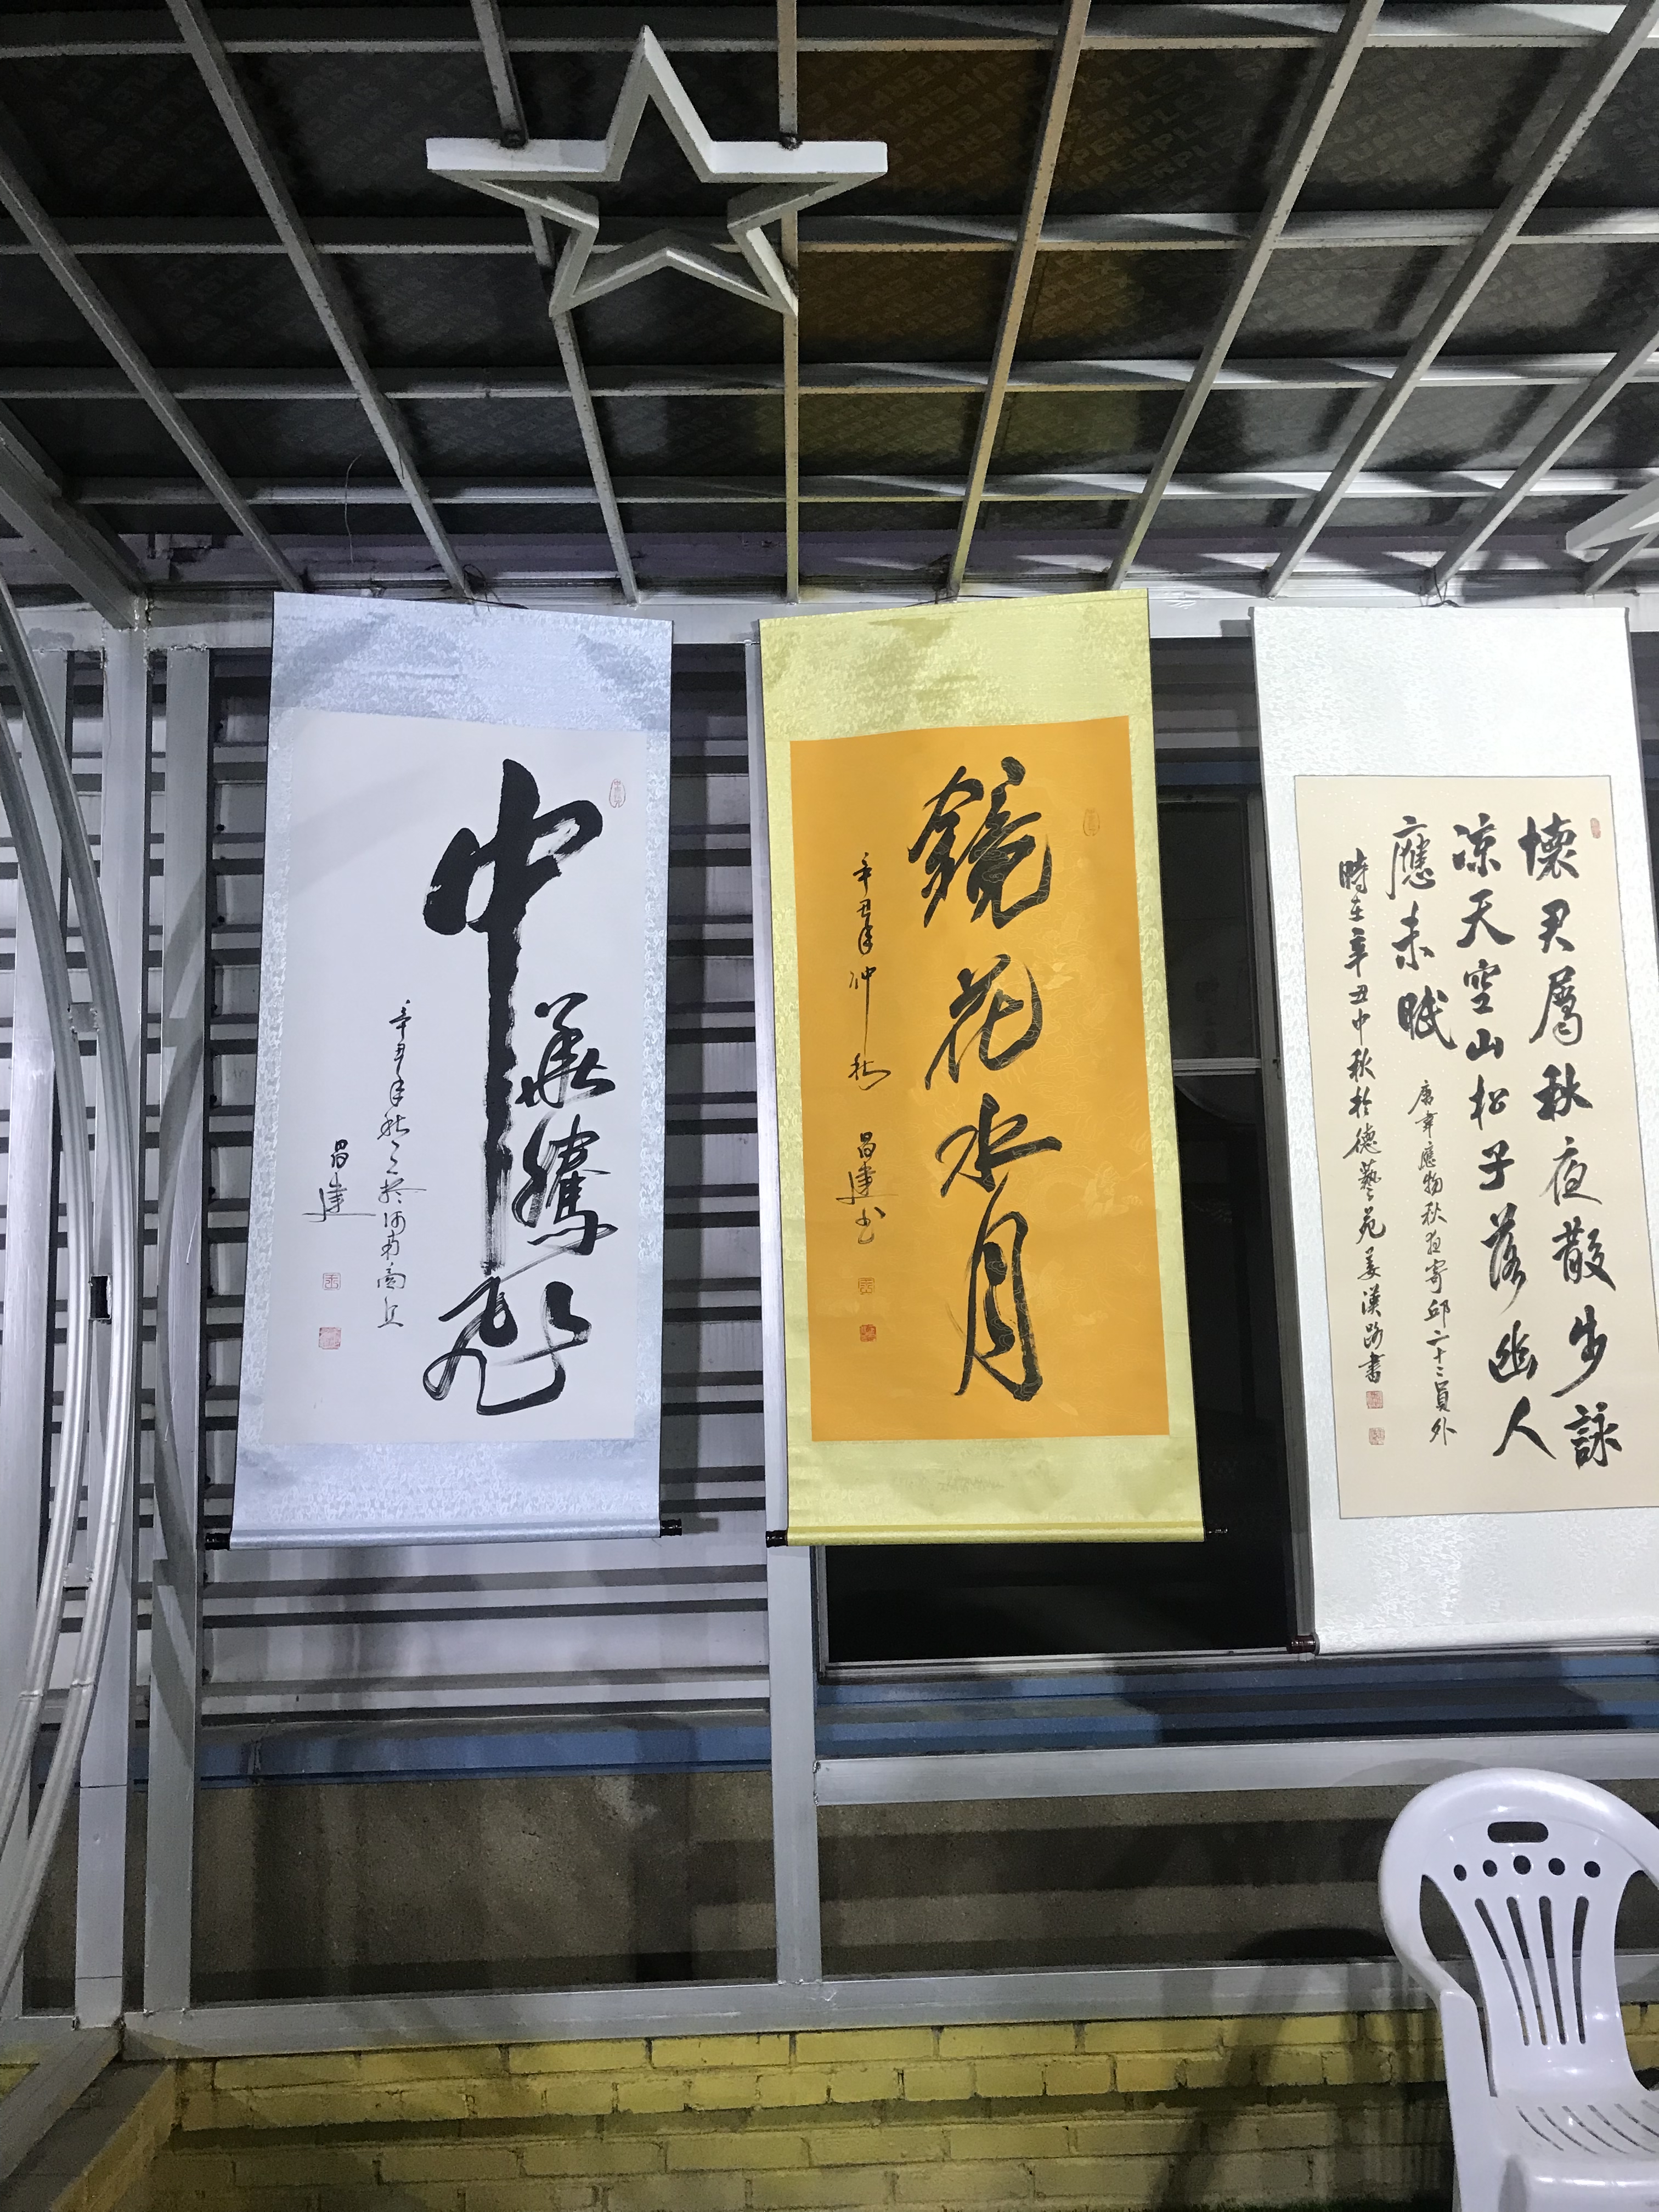 SUPERPLEX
中華騰飛
辛丑年秋之於河南商丘
昌建
鏡花水月
辛丑年仲秋
昌建书
懷君屬秋夜散步詠
涼天空山松子落幽人
應未眠
唐韋應物秋夜寄邱二十二員外
時在辛丑中秋於德藝苑姜漢路書